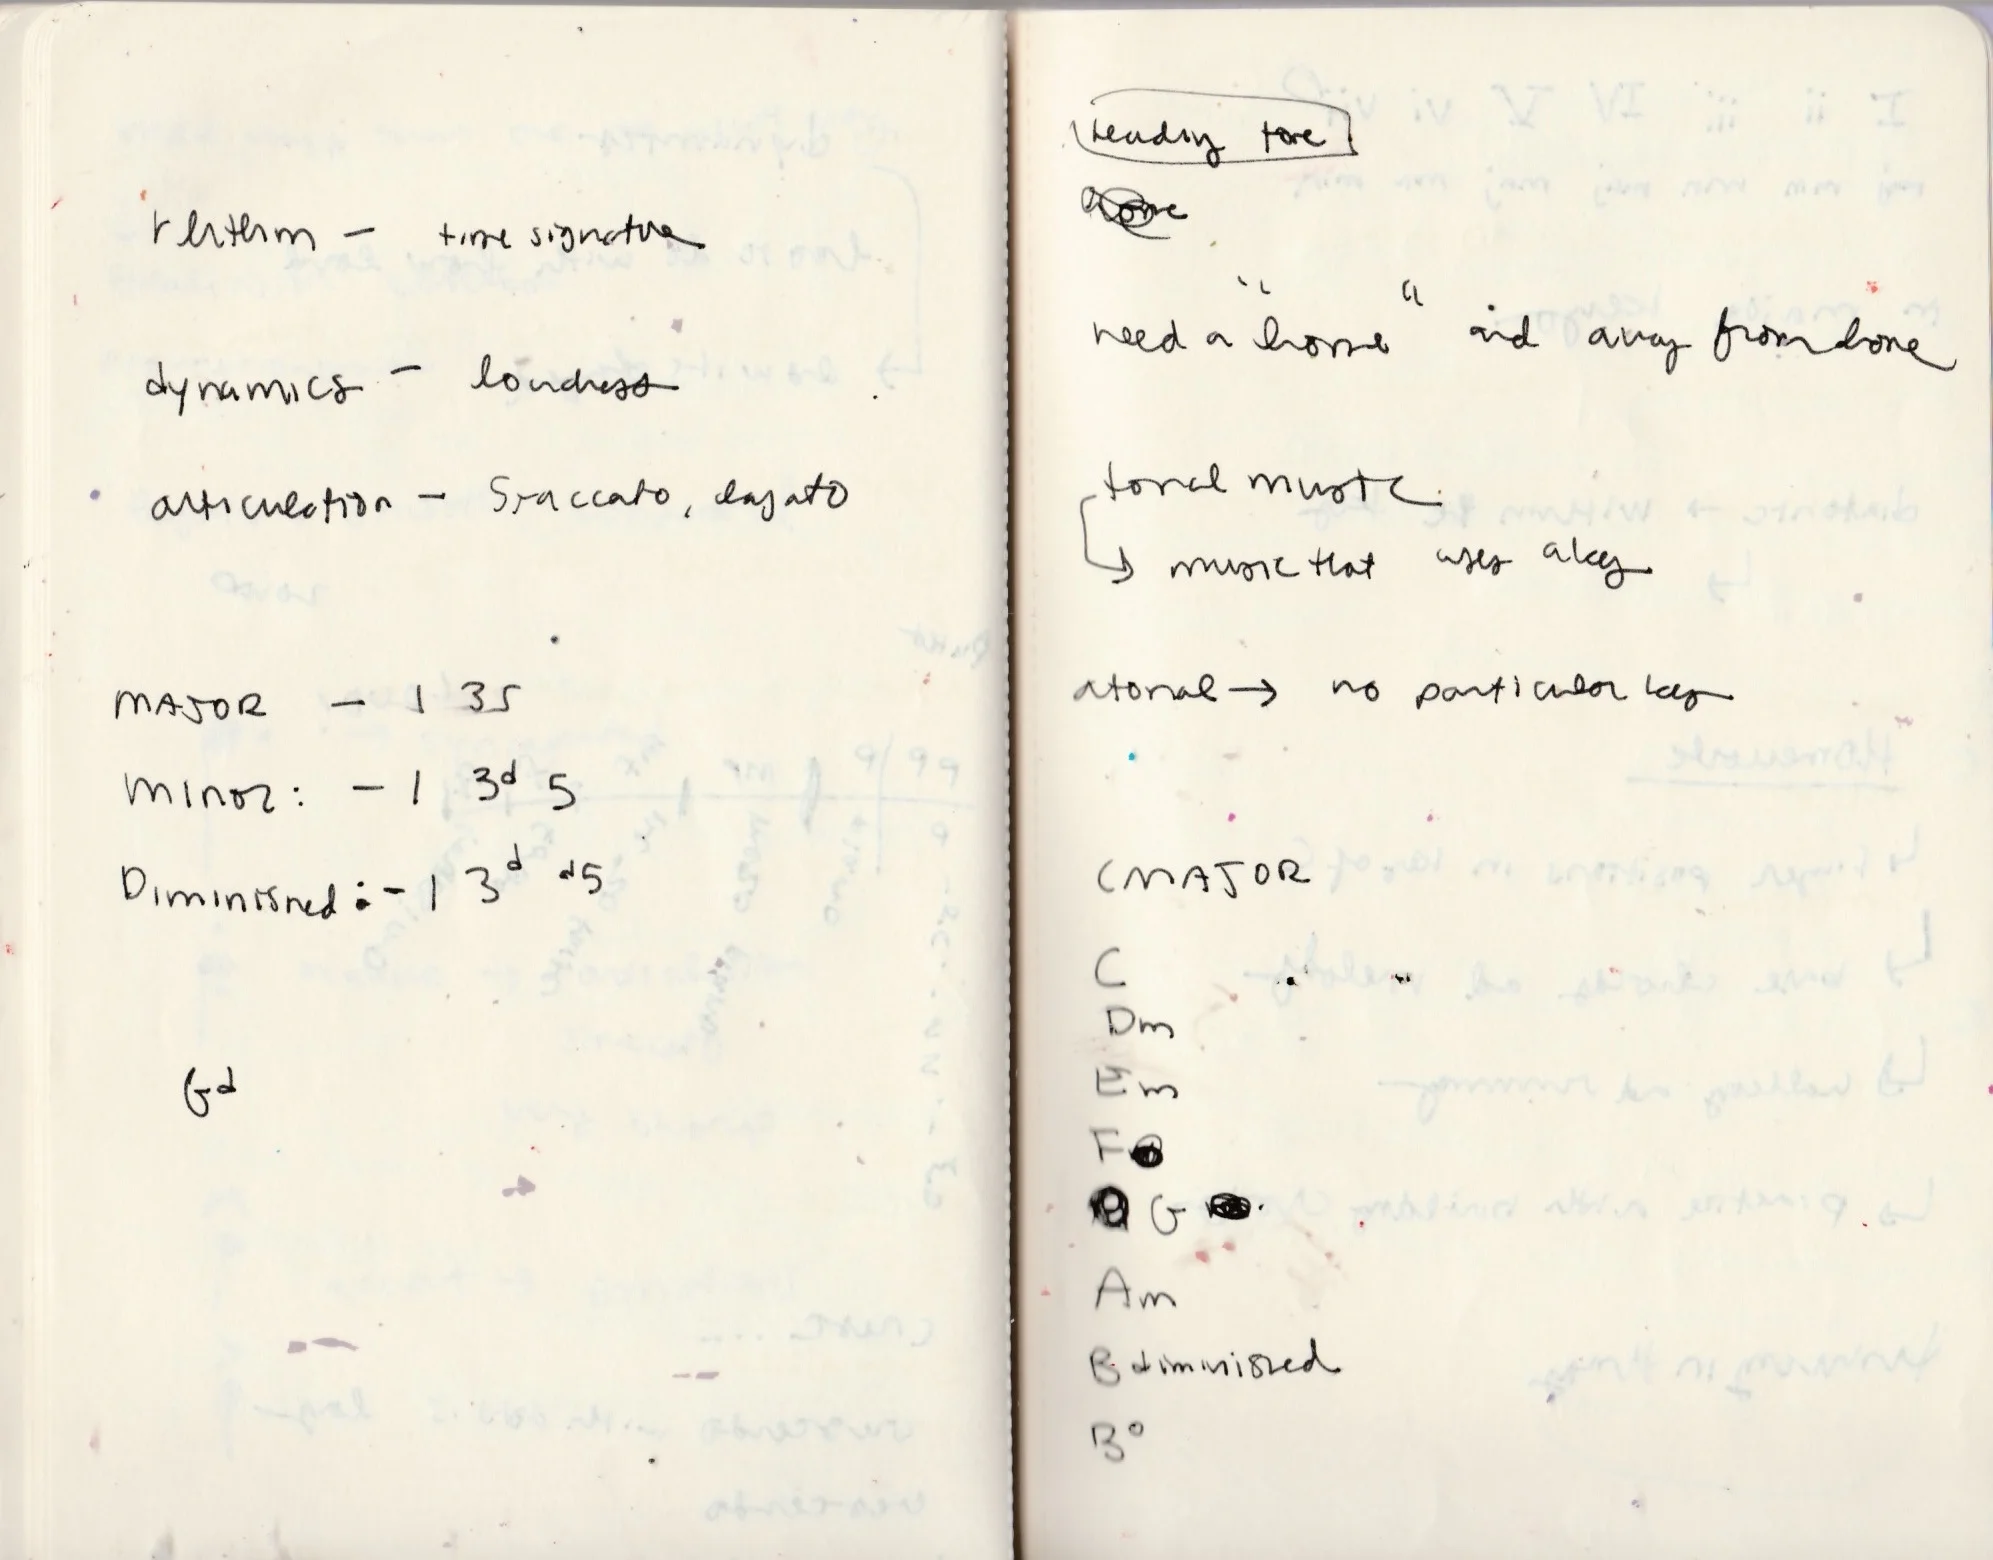 rhthm - time signature
dynamics - loudness
articulation - Staccato, legato
MAJOR - 1 3 5
Minor: - 1 3d 5
Diminished: - 1 3d d5
Gd
Leading tone
need a "home" and away from home
tonal music
↳ music that uses a key
atonal → no particular key
C MAJOR
C
Dm
Em
F
G
Am
B diminished
B°